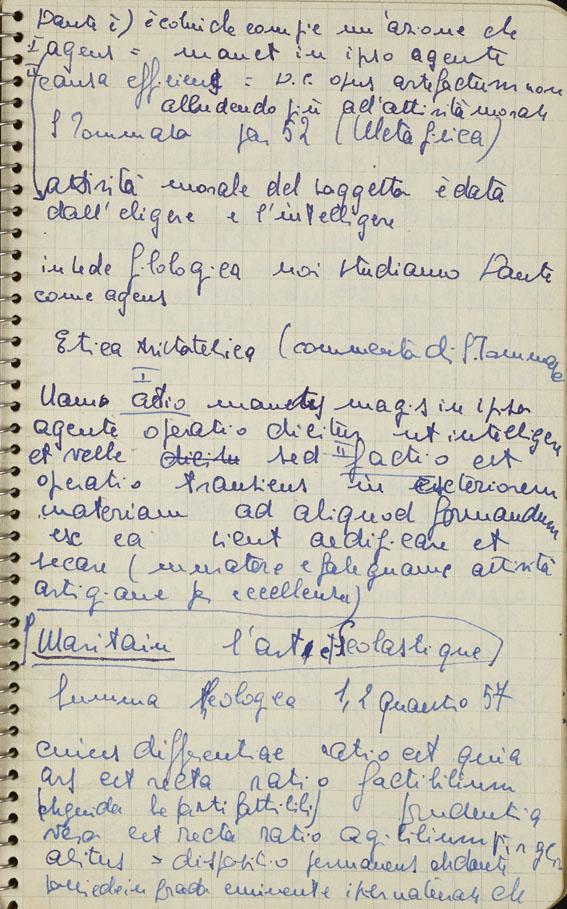 Dante è) è colui che compie un'azione che
I agens = manet in ipso agente
II causa efficiens = D.C. opus artefactum non
alludendo più ad'attività morale
S Tommaso pag 52 (Metafisica)
attività morale del soggetto è data
dall'eligere e l'intelligere
in sede filologica noi studiamo Dante
come agens
Etica Aristotelica (commento di S. Tommaso
I
Nam actio manens magis in ipso
agente operatio dicitur ut intelligere
et velle sed II factio est
operatio transiens in exteriorem
materiam ad aliquod formandum
ex ea sicut aedificare et
secare (muratore e falegname attività
artigiane per eccellenza)
(Maritain l'art et Scolastique)
Summa teologica 1,2 Quaestio 57
cuius differentiae ratio est quia
ars est recta ratio factibilium
prudentia
vero est recta ratio agibilium
abitus = dispositio permanens
in grado eminente che